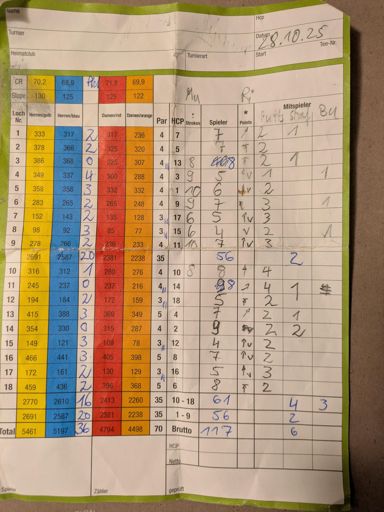 Name
Hcp
Turnier
Datum 28.10.25
Tee-Nr.
Heimatclub Turnierort Start
CR 70,2 68,9 71,8 69,9
Slope 130 125 125 122
Mitspieler
Loch Nr. Herren/gelb Herren/blau Damen/rot Damen/orange Par HCP Spieler Punkte
1 333 317 2 317 236 4 7 7 2 1
2 378 366 2 325 320 4 5 7 2
3 386 368 0 307 4 13 8 8 2 1
4 349 337 4 300 288 4 3 9 5 1 1
5 358 356 3 332 332 4 1 10 6 2
6 283 265 2 265 248 4 9 9 7 3 1
7 152 143 2 135 128 3 17 6 5 3
8 98 92 3 85 77 3 15 6 4 2 1
9 278 266 2 4 11 10 7 3
2691 2587 20 2381 2238 35 56 2
10 316 312 1 280 276 4 10 8 8 4
11 245 237 0 237 216 4 14 8 4 1
12 194 184 2 172 159 3 18 5 2 1
13 415 388 3 369 349 5 4 7 2 1
14 354 330 0 315 287 4 2 9 2 2
15 149 121 3 108 78 3 12 4 2
16 466 441 3 405 398 5 8 7 2
17 172 161 2 129 3 16 5 3
18 459 436 2 396 368 5 6 8 2
2770 2610 16 2413 2260 35 10 - 18 61 4 3
2691 2587 20 2381 2238 35 1 - 9 56 2
Total 5461 5197 36 4794 4498 70 Brutto 117 6
HCP
Netto
Spieler Zähler geprüft